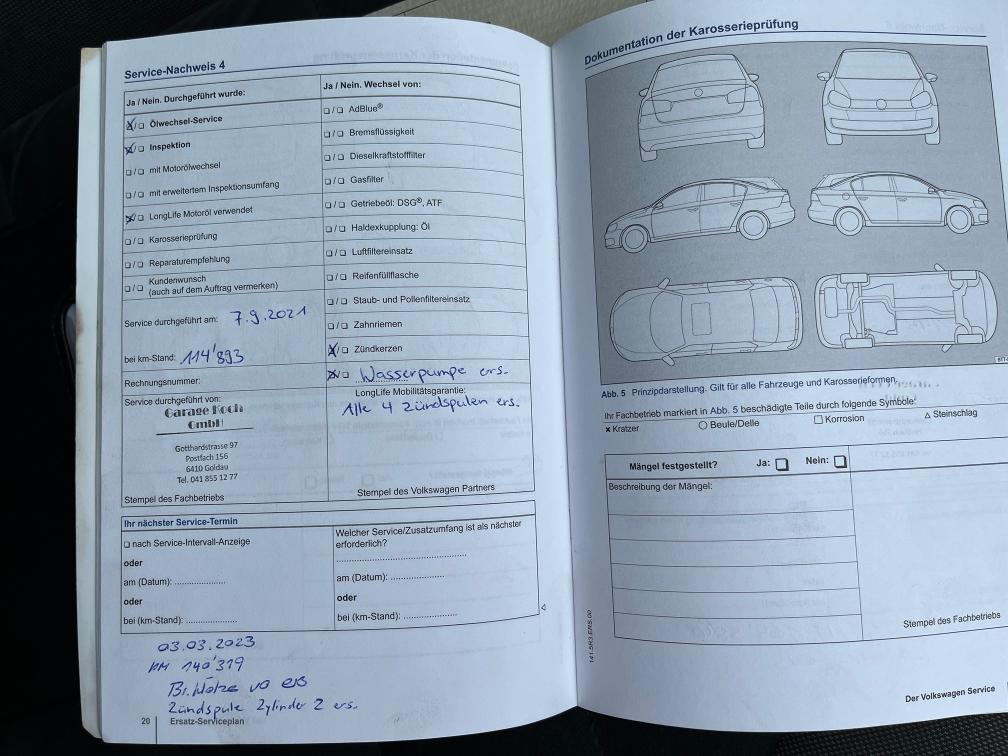 Service-Nachweis 4
Ja / Nein. Durchgeführt wurde:
Ölwechsel-Service
Inspektion
mit Motorölwechsel
mit erweitertem Inspektionsumfang
LongLife Motoröl verwendet
Karosserieprüfung
Reparaturempfehlung
Kundenwunsch
(auch auf dem Auftrag vermerken)
Service durchgeführt am: 7.9.2021
bei km-Stand: 114'893
Rechnungsnummer:
Service durchgeführt von:
Garage Koch
GmbH
Gotthardstrasse 97
Postfach 156
6410 Goldau
Tel. 041 855 12 77
Stempel des Fachbetriebs
Ja / Nein. Wechsel von:
AdBlue®
Bremsflüssigkeit
Dieselkraftstofffilter
Gasfilter
Getriebeöl: DSG®, ATF
Haldexkupplung: Öl
Luftfiltereinsatz
Reifenfüllflasche
Staub- und Pollenfiltereinsatz
Zahnriemen
Zündkerzen
Wasserpumpe ers.
LongLife Mobilitätsgarantie:
Alle 4 Zündspulen ers.
Stempel des Volkswagen Partners
Ihr nächster Service-Termin
nach Service-Intervall-Anzeige
oder
am (Datum): ....................
oder
bei (km-Stand): ....................
Welcher Service/Zusatzumfang ist als nächster
erforderlich?
am (Datum): ....................
oder
bei (km-Stand): ....................
03.03.2023
KM 140'319
Br. klötze VA ers
Zündspule Zylinder 2 ers.
20 Ersatz-Serviceplan
Dokumentation der Karosserieprüfung
Abb. 5 Prinzipdarstellung. Gilt für alle Fahrzeuge und Karosserieformen.
Ihr Fachbetrieb markiert in Abb. 5 beschädigte Teile durch folgende Symbole:
× Kratzer ○ Beule/Delle □ Korrosion △ Steinschlag
Mängel festgestellt? Ja: Nein:
Beschreibung der Mängel:
Stempel des Fachbetriebs
141.5R3.ERS.00
Der Volkswagen Service